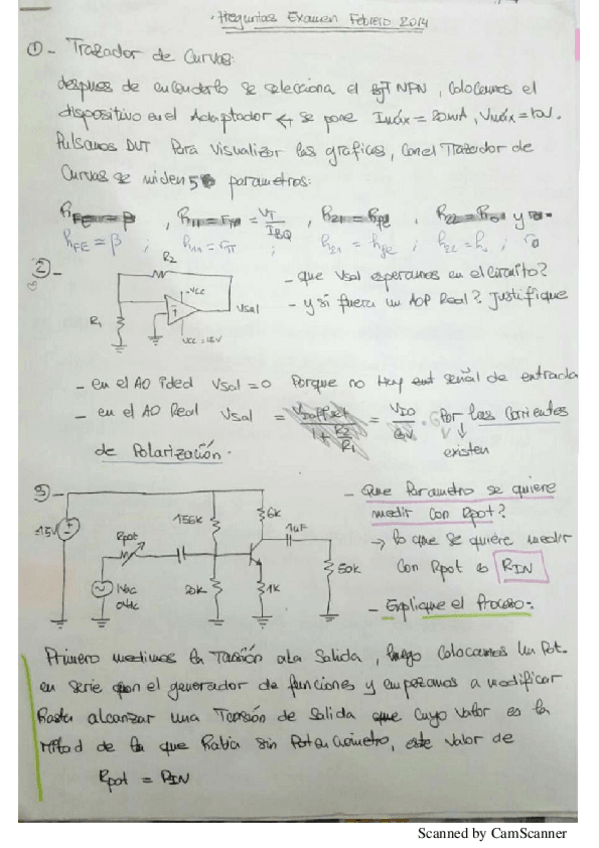 · Preguntas Examen Febrero 2014
① - Trazador de Curvas:
despues de encenderlo se selecciona el BJT NPN, Colocamos el
dispositivo en el Adaptador ↔ se pone Imáx = 20mA, Vmáx = 10V.
Pulsamos DUT Para visualizar las graficas, con el Trazador de
Curvas se miden 5 parametros:
hFE = β ; h11 = rπ = VT/IBQ ; h21 = hfe ; h22 = ho y ro
hFE = β ; h11 = rπ ; h21 = hfe ; h22 = ho ; ro
② -
R2
-VCC
R1
Vsal
VCC = 15V
- que Vsal esperamos en el circuito?
- y si fuera un AOP Real? Justifique
- en el AO ideal Vsal = 0 Porque no Hay ent señal de entrada
- en el AO Real Vsal = Voffset/(1 + R2/R1) = VIO/GV · G Por las Corrientes
de Polarización.
existen
3) -
15V
Rpot
156K
6K
1uF
20K
1K
50K
1Vac
0Vdc
- Que Parametro se quiere
medir con Rpot?
→ lo que se quiere medir
con Rpot es RIN
- Explique el Proceso:
Primero medimos la Tensión a la Salida, luego colocamos un Pot.
en serie con el generador de funciones y empezamos a modificar
hasta alcanzar una Tensión de Salida que cuyo valor es la
Mitad de la que había sin Potenciometro, este valor de
Rpot = RIN
Scanned by CamScanner